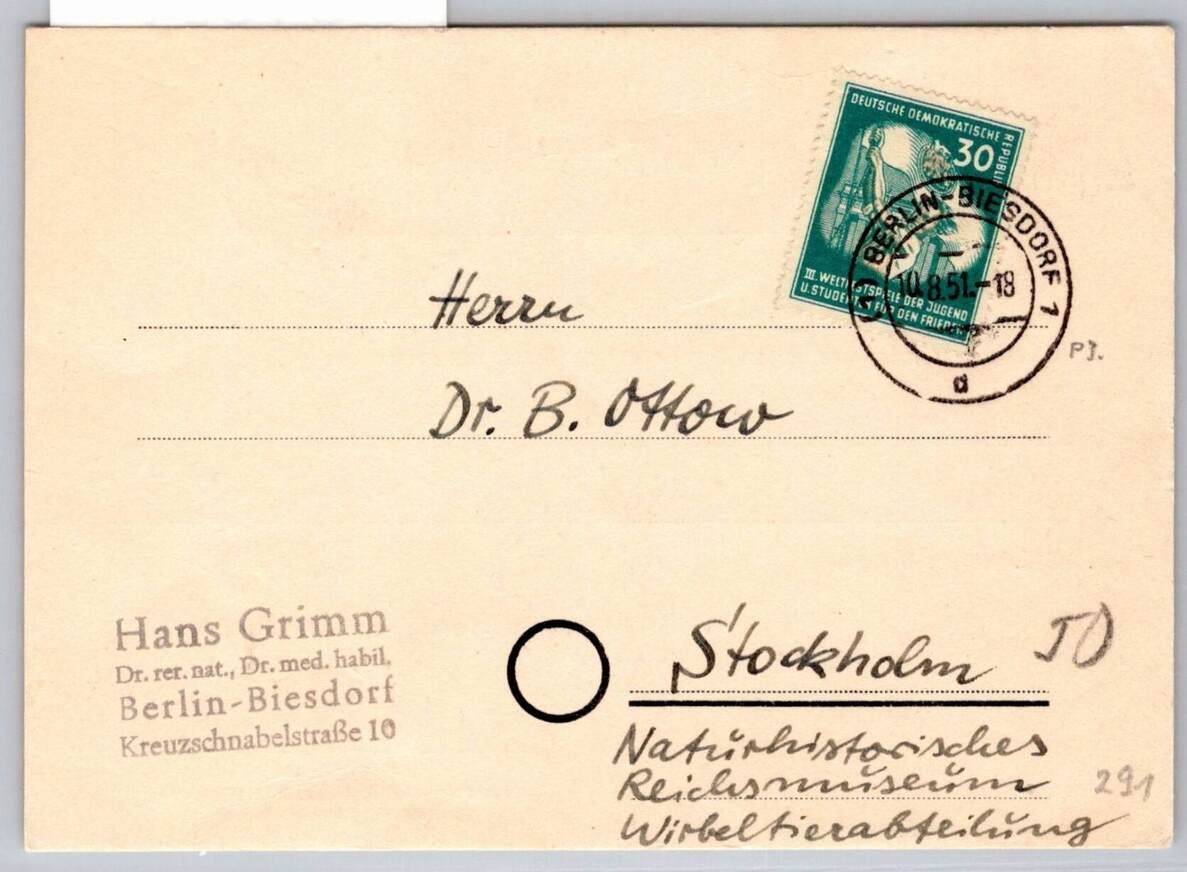 DEUTSCHE DEMOKRATISCHE REPUBLIK
30
III. WELTFESTSPIELE DER JUGEND
U. STUDENTEN FÜR DEN FRIEDEN
BERLIN-BIESDORF 1
10.8.51.-18
d
P3.
Herrn
Dr. B. Ottow
Hans Grimm
Dr. rer. nat., Dr. med. habil.
Berlin-Biesdorf
Kreuzschnabelstraße 10
Stockholm
50
Naturhistorisches
Reichsmuseum
291
Wirbeltierabteilung